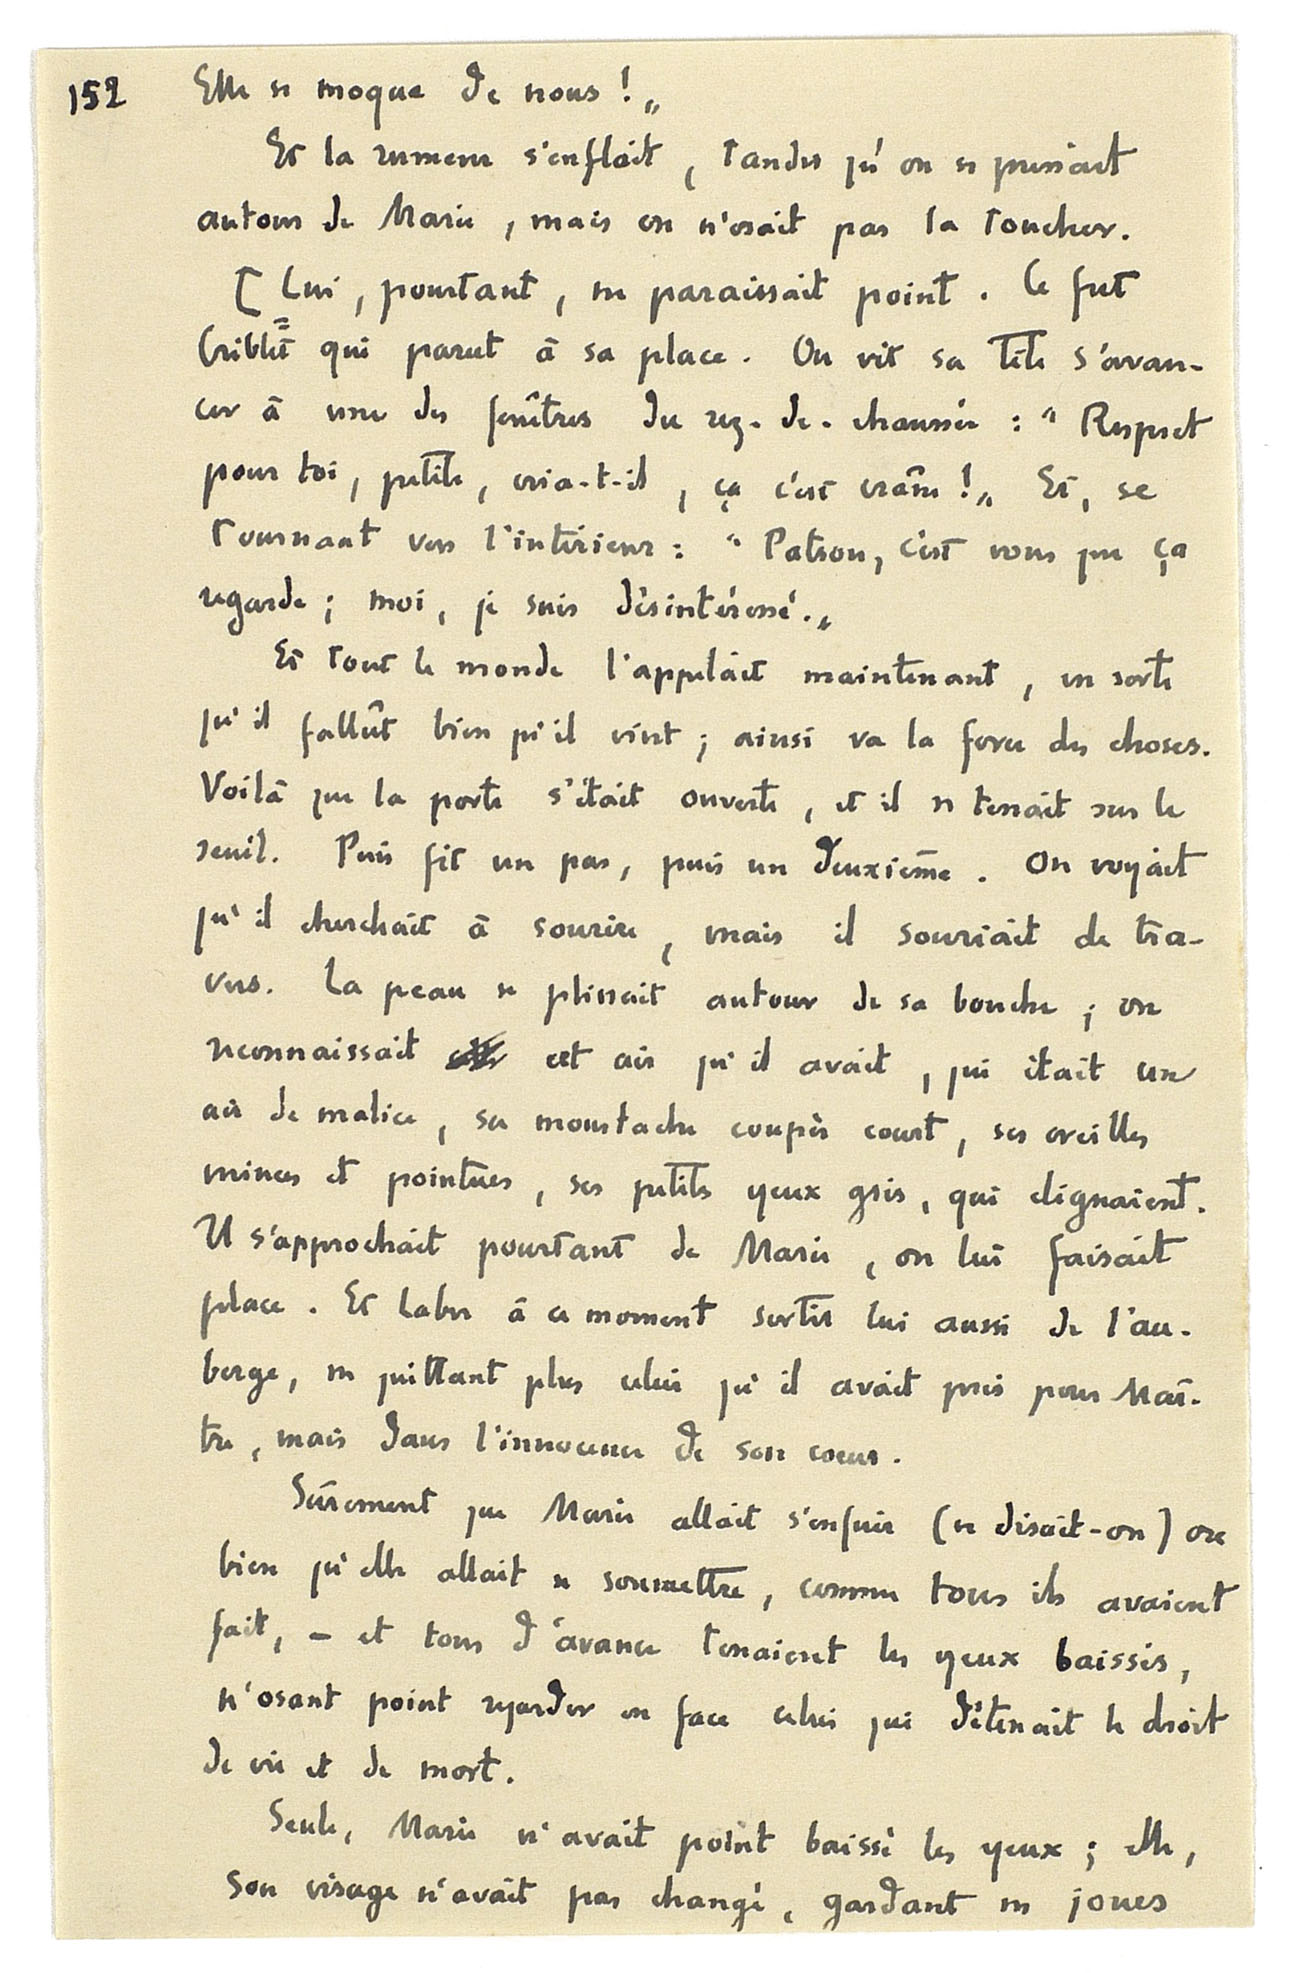 152
Elle se moque de nous ! „
Et la rumeur s'enflait, tandis qu'on se pressait
autour de Marie, mais on n'osait pas la toucher.
[ Lui, pourtant, ne paraissait point. Ce fut
Criblet qui parut à sa place. On vit sa tête s'avan-
cer à une des fenêtres du rez-de-chaussée : “ Respect
pour toi, petite, cria-t-il, ça c'est crâne ! „ Et, se
tournant vers l'intérieur : “ Patron, c'est vous que ça
regarde ; moi, je suis désintéressé. „
Et tout le monde l'appelait maintenant, en sorte
qu'il fallût bien qu'il vînt ; ainsi va la force des choses.
Voilà que la porte s'était ouverte, et il se tenait sur le
seuil. Puis fit un pas, puis un deuxième. On voyait
qu'il cherchait à sourire, mais il souriait de tra-
vers. La peau se plissait autour de sa bouche ; on
reconnaissait cet air qu'il avait, qui était un
air de malice, sa moustache coupée court, ses oreilles
minces et pointues, ses petits yeux gris, qui clignaient.
Il s'approchait pourtant de Marie, on lui faisait
place. Et Labre à ce moment sortit lui aussi de l'au-
berge, ne quittant plus celui qu'il avait pris pour Maî-
tre, mais dans l'innocence de son coeur.
Sûrement que Marie allait s'enfuir (se disait-on) ou
bien qu'elle allait se soumettre, comme tous ils avaient
fait, – et tous d'avance tenaient les yeux baissés,
n'osant point regarder en face celui qui détenait le droit
de vie et de mort.
Seule, Marie n'avait point baissé les yeux ; elle,
son visage n'avait pas changé, gardant ses joues